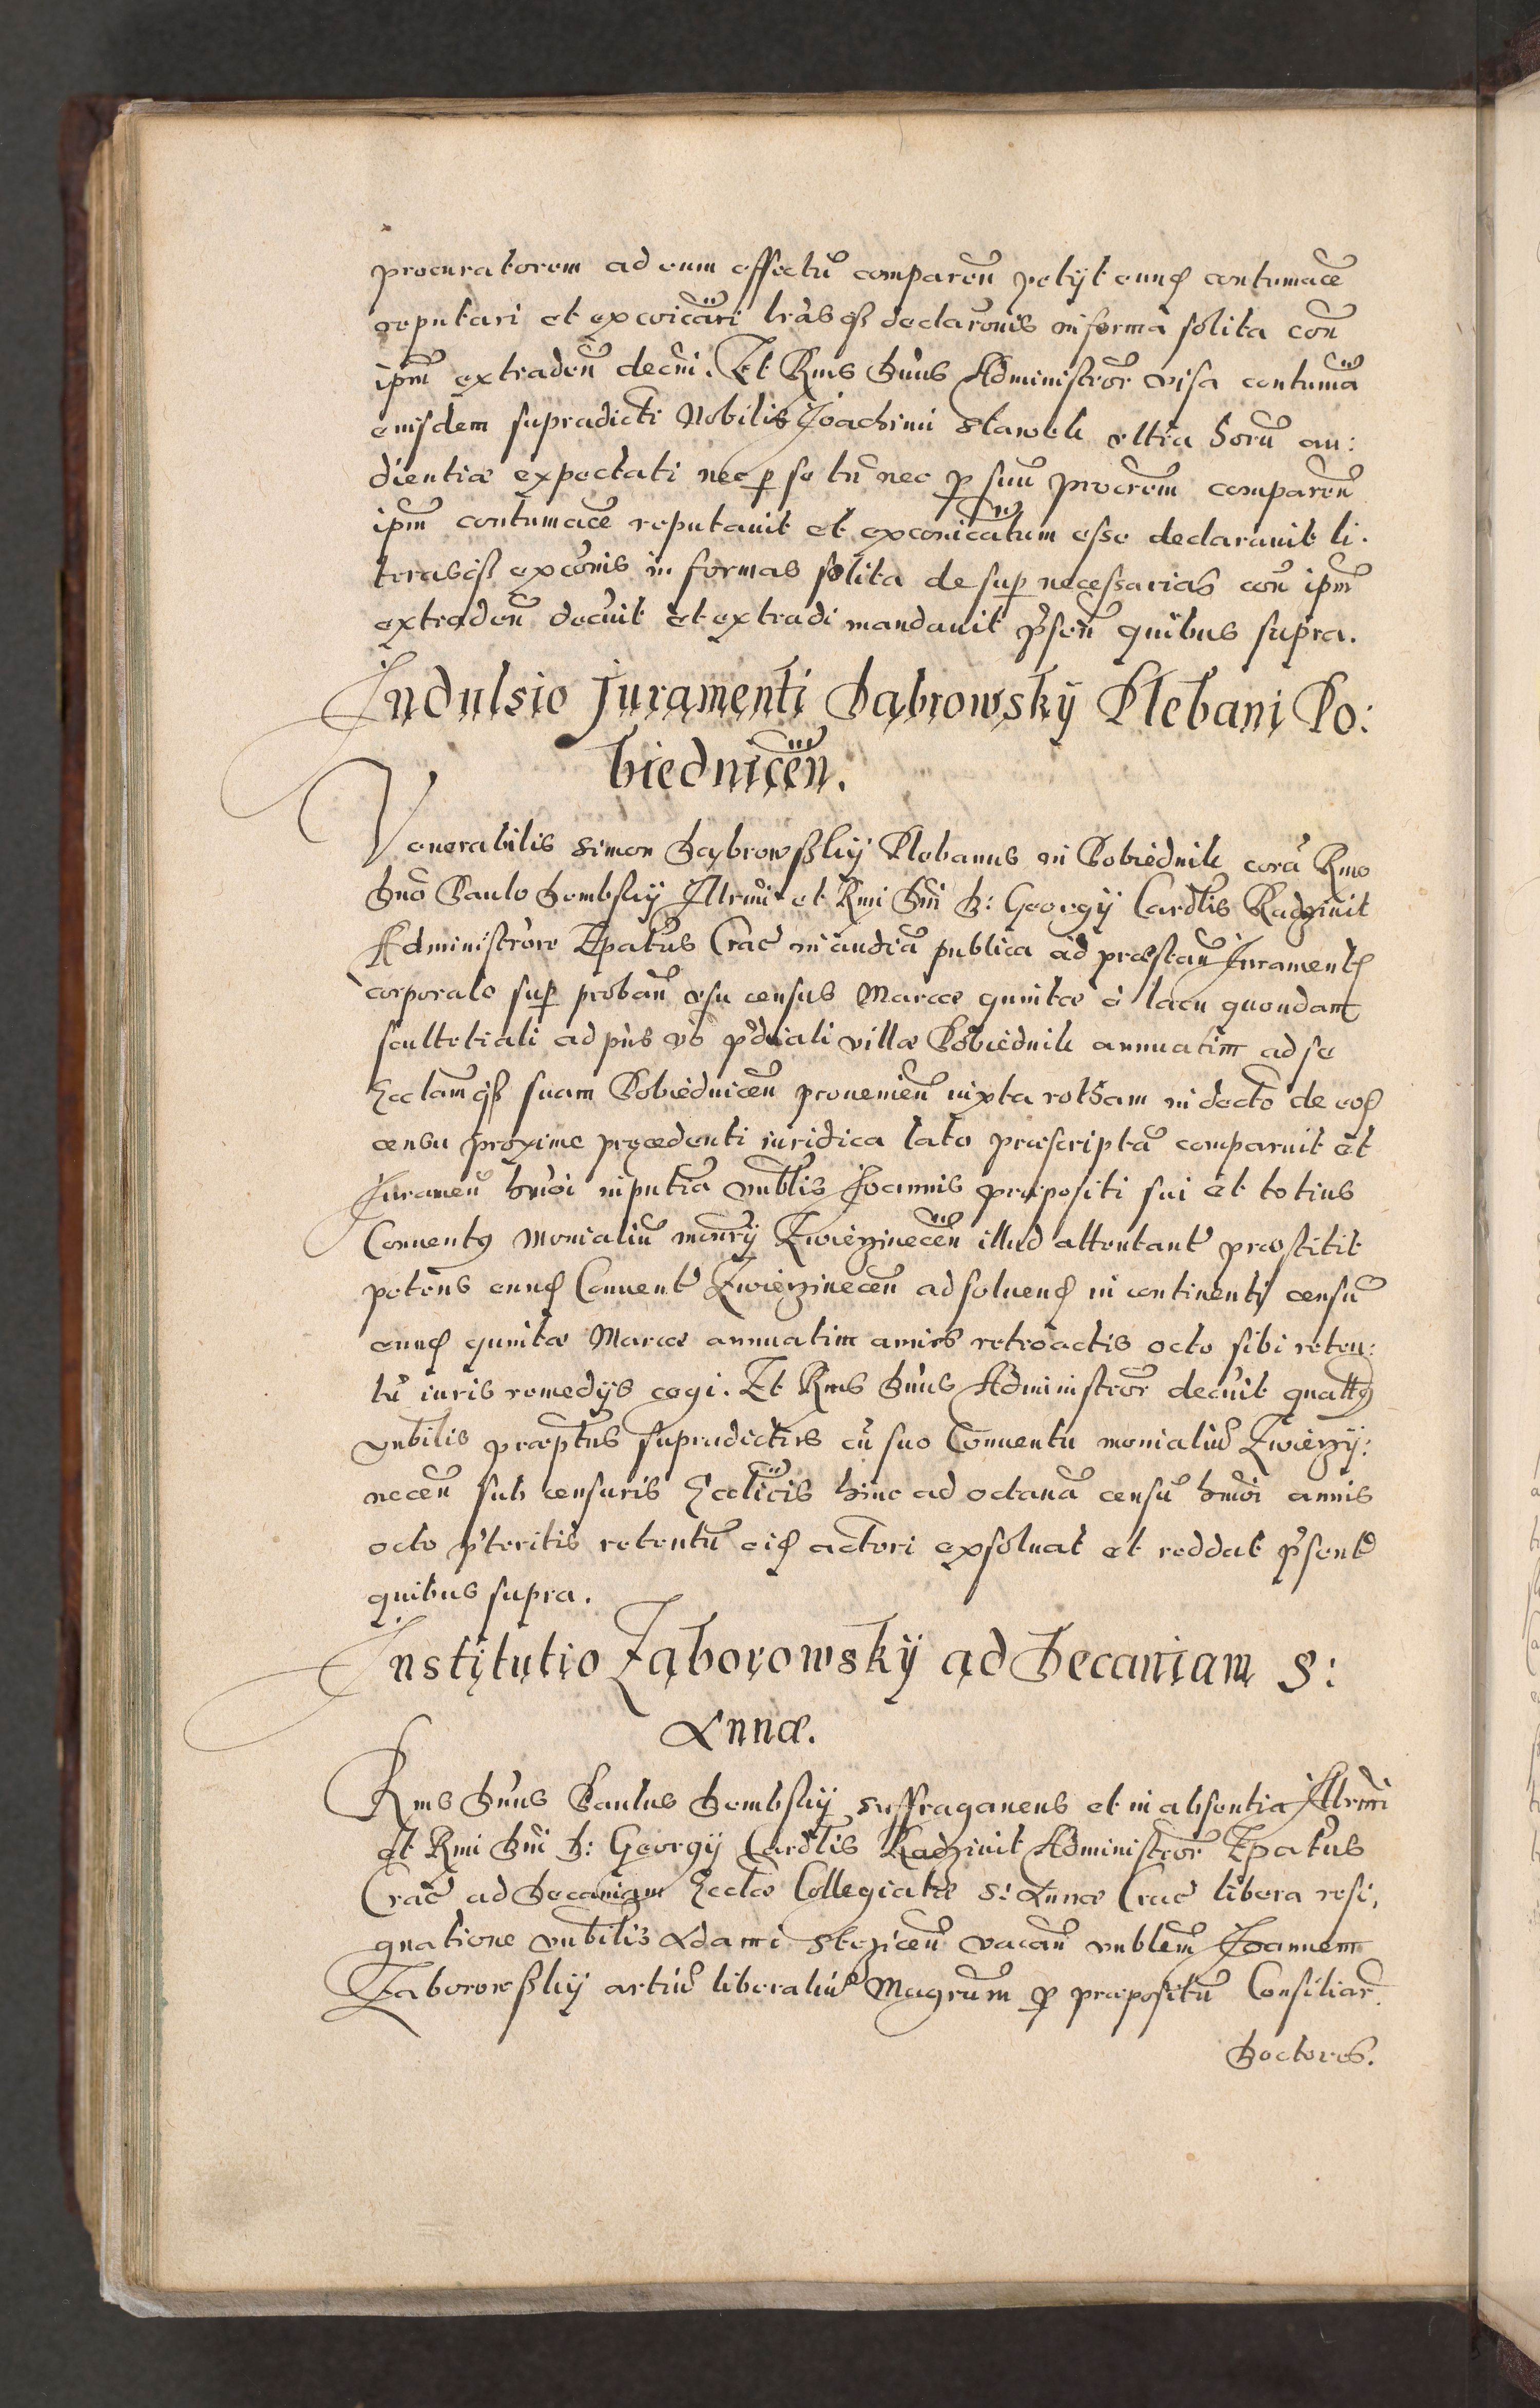 procuratorem ad eum effectū comparen̄ petijt eund contumacē
reputari et excoīcari lrāsq declaraōnis in forma solita con̄
ipm̄ extraden̄ decni. Et Rmus Dnūs Administror visa contumā
eiusdem supradicti Nobilis Joachimi Stawsk ultra horū au:
dientiæ expectati nec p se tn̄ nec p suū procrem̄ comparen̄
ipm̄ contumacē reputauit et exconicatum esse declarauit li.
terasq excōnis in formas solita de sup necessarias con̄ ipm̄
extraden̄ decnit et extradi mandauit psen̄ quibus supra.
Indulsio Juramenti Dąbrowskÿ Plebani Po:
biednicen̄.
Venerabilis Simon Dąbrowßkÿ Plebanus in Pobiednik corā Rmo
Dnō Paulo Dembskÿ Illrmi et Rmi Dni D: Georgÿ Cardlis Radziuił
Administrore Epatus Crac̄ in audiā publica ad præstan̄ Jurament
corporale sup proban̄ usu census Marcæ quintæ à lacu quondam
scultetiali ad pn̄s vō pdiali villæ Pobiednik annuatim ad se
Ecclamq suam Pobiednicen̄ prouenien̄ iuxta rotham in decto de eod
censu proxime præcedenti iuridica lato præscriptā comparuit et
Juramen̄ hmōi in pntiā vnblis Joannis præpositi sui et totius
Conuentus Monialiū monrÿ Zwierzinecen̄ illud attentant præstitit
petens eund Conuent Zwierzinecen̄ ad soluend in continenti censū
eund quintæ Marcæ annuatim annis retroactis octo sibi reten:
tū iuris remedÿs cogi. Et Rmus Dnūs Administror decnit quatt9
vnbilis præptus supradictus cū suo Conuentu monialiū Zwierzÿ:
necen̄ sub censuris Ecclīcis hinc ad octauā censū hmōi annis
octo pteritis retentū eid actori exsoluat et reddat psent
quibus supra.
Institutio Zaborowskÿ ad Decaniam S:
Annæ.
Rmus Dnūs Paulus Dembskÿ Suffraganeus et in absentia Illrmi
et Rmi Dni D: Georgÿ Cardlis Radziuił Administror Epatus
Crac̄ ad Decaniam Ecclæ Collegiatæ S: Annæ Crac̄ libera resi,
gnatione vnbilis Adami Stezicen̄ vacan̄ vnblem̄ Joannem
Zaborowßkÿ artiū liberaliū Magrum p præpositū Consiliar
Doctores.